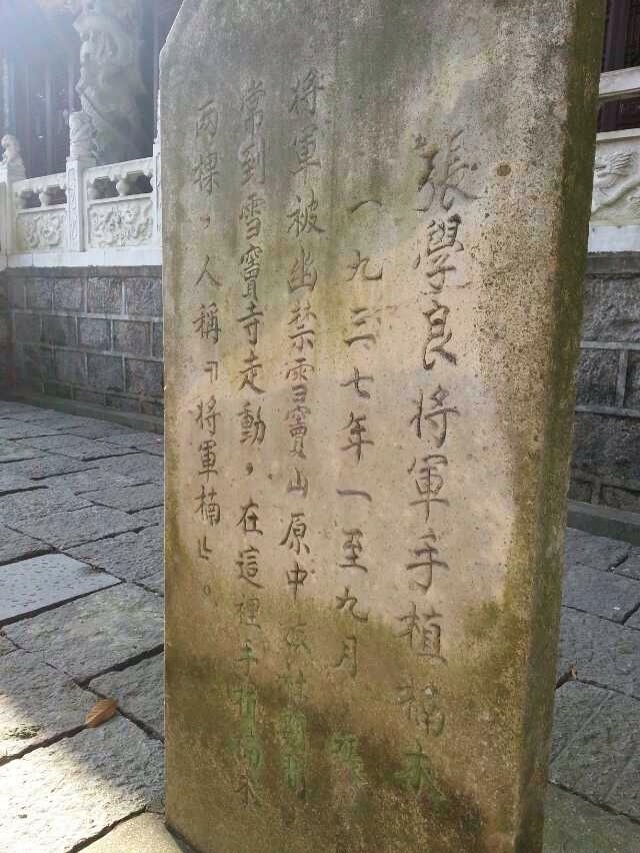 張學良將軍手植楠木
一九三七年一至九月 張
將軍被幽禁雪竇山原中旅社期間
常到雪竇寺走動，在這裡手植楠木
兩棵，人稱「將軍楠」。